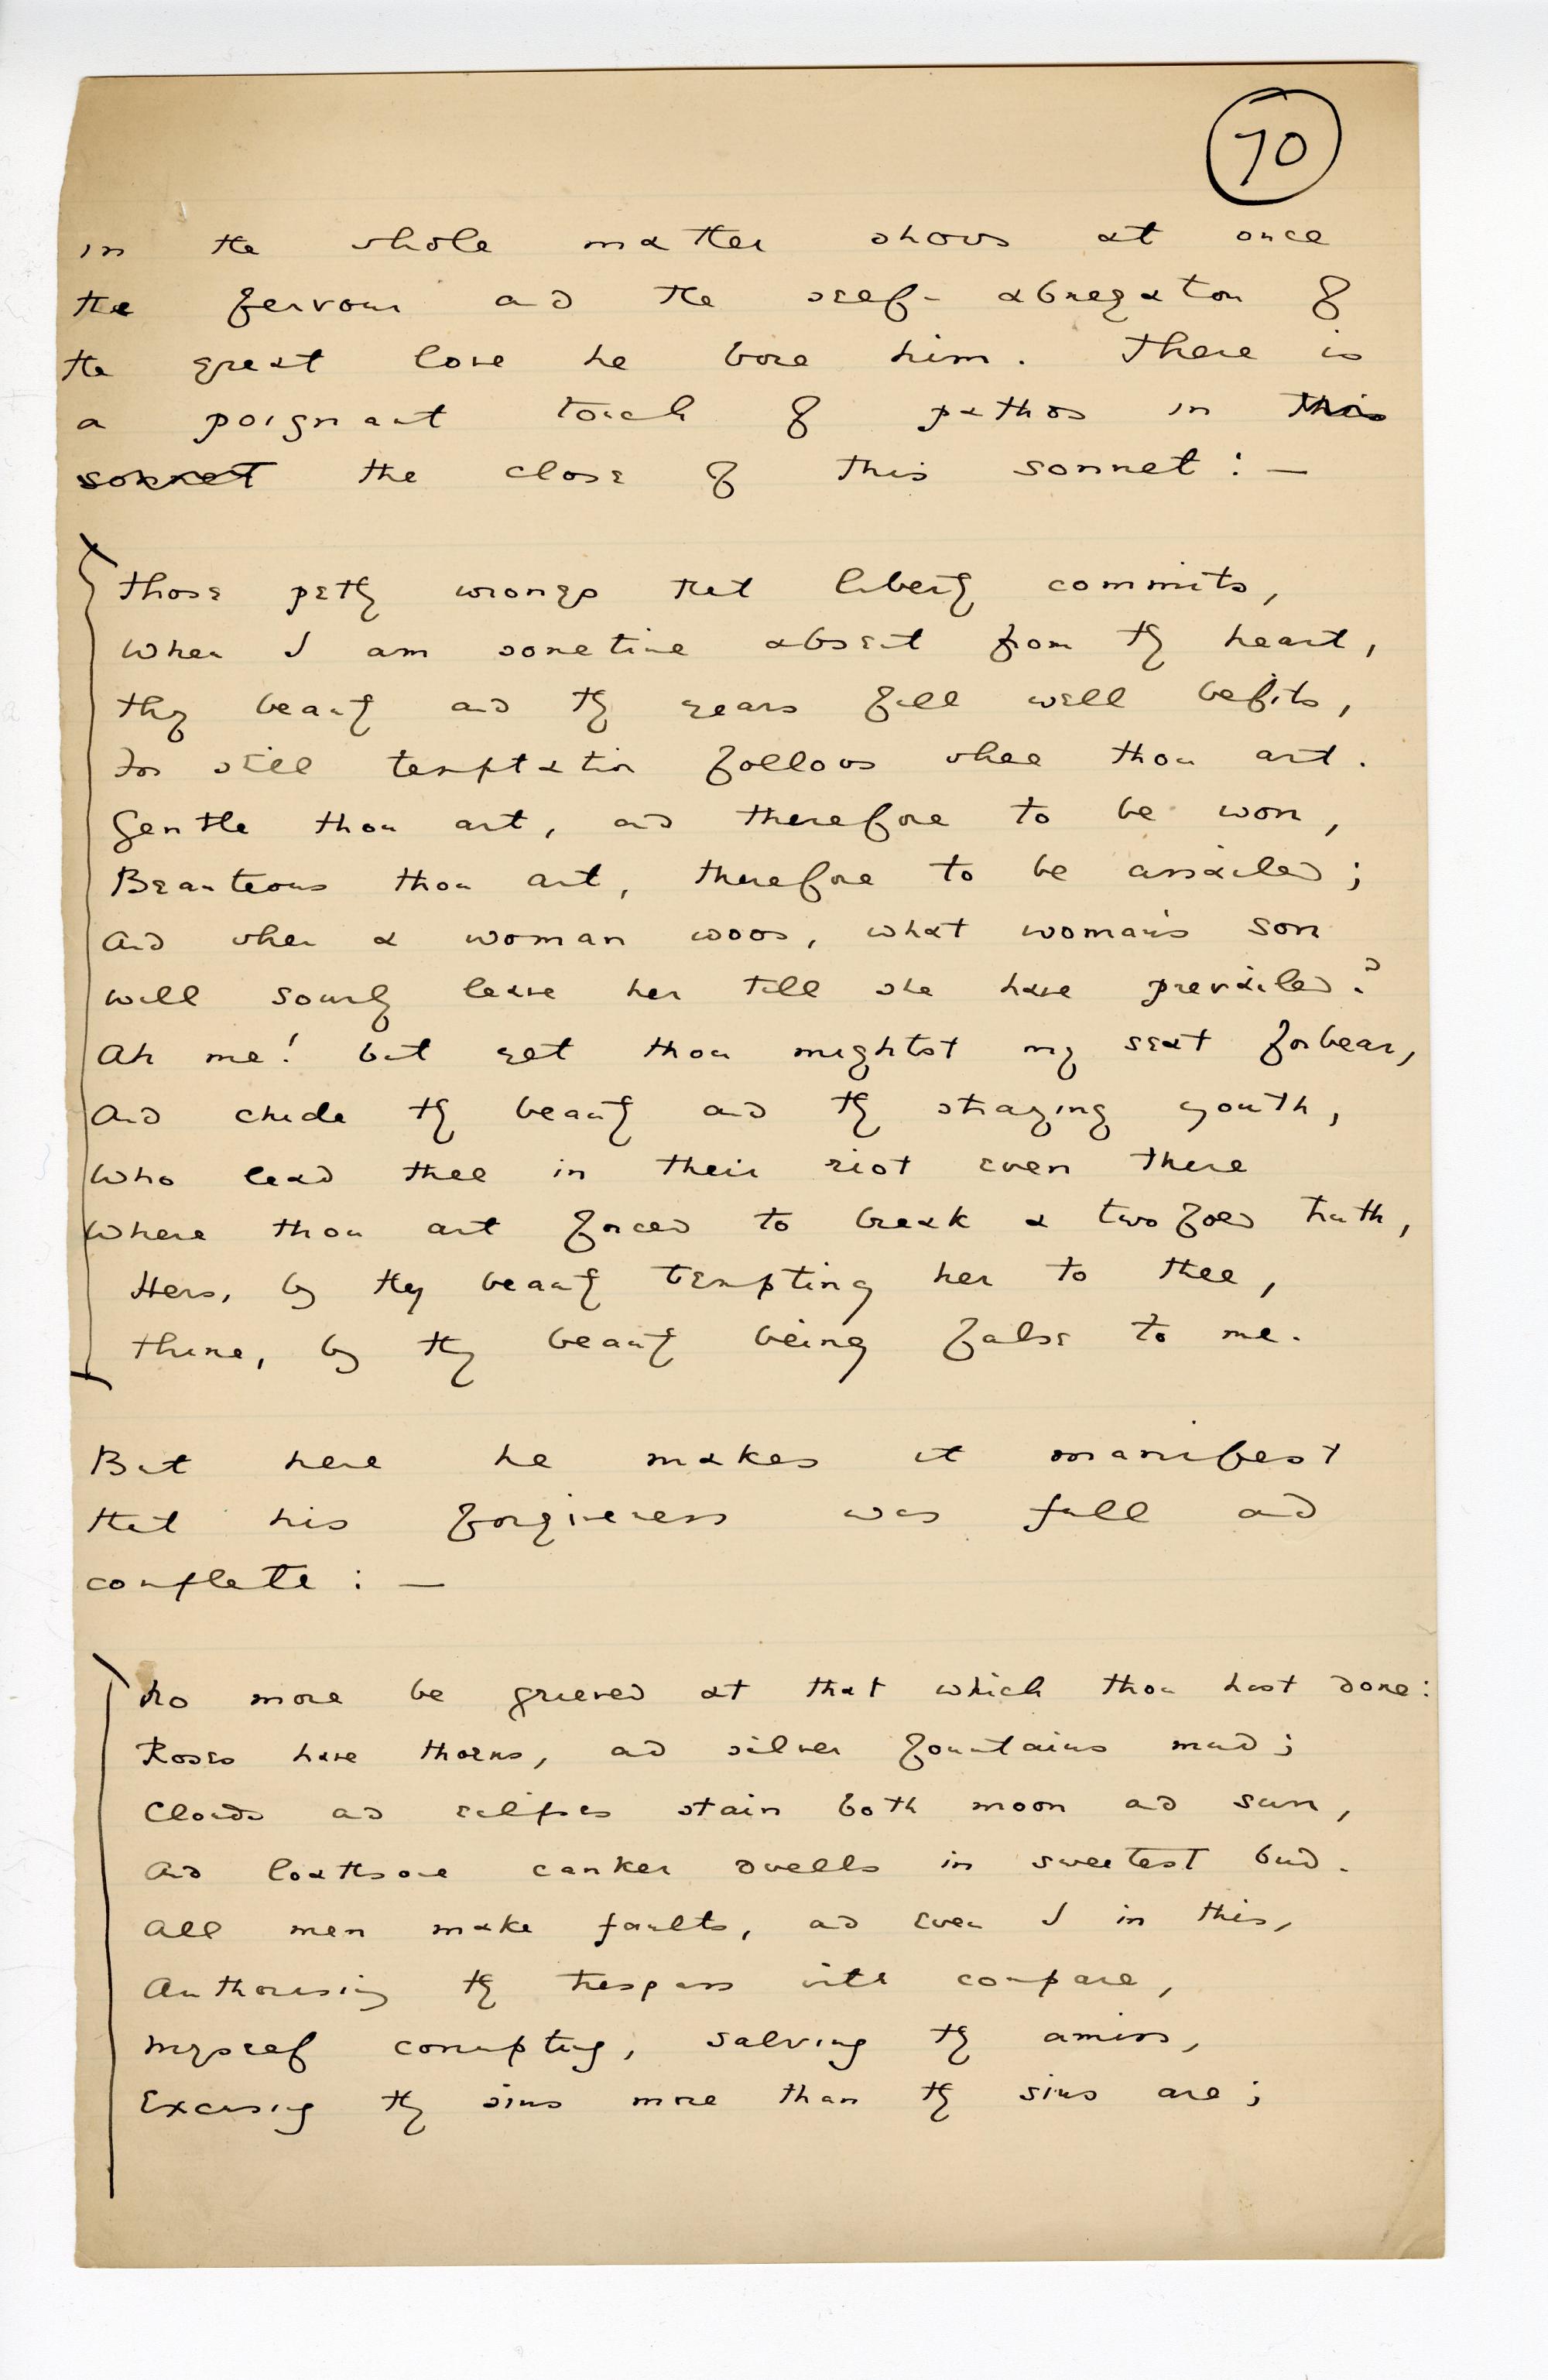 70
in the whole matter shows at once
the fervour and the self-abnegation of
the great love he bore him. There is
a poignant touch of pathos in this
sonnet the close of this sonnet : —
Those petty wrongs that liberty commits,
When I am sometime absent from thy heart,
Thy beauty and thy years full well befits,
For still temptation follows where thou art.
Gentle thou art, and therefore to be won,
Beauteous thou art, therefore to be assailed;
And when a woman woos, what woman's son
Will sourly leave her till she have prevailed?
Ah me! but yet thou mightst my seat forbear,
And chide thy beauty and thy straying youth,
Who lead thee in their riot even there
Where thou art forced to break a twofold truth,
Hers, by thy beauty tempting her to thee,
Thine, by thy beauty being false to me.
But here he makes it manifest
that his forgiveness was full and
complete : —
No more be grieved at that which thou hast done:
Roses have thorns, and silver fountains mud;
Clouds and eclipses stain both moon and sun,
And loathsome canker dwells in sweetest bud.
All men make faults, and even I in this,
Authorising thy trespass with compare,
Myself corrupting, salving thy amiss,
Excusing thy sins more than thy sins are;